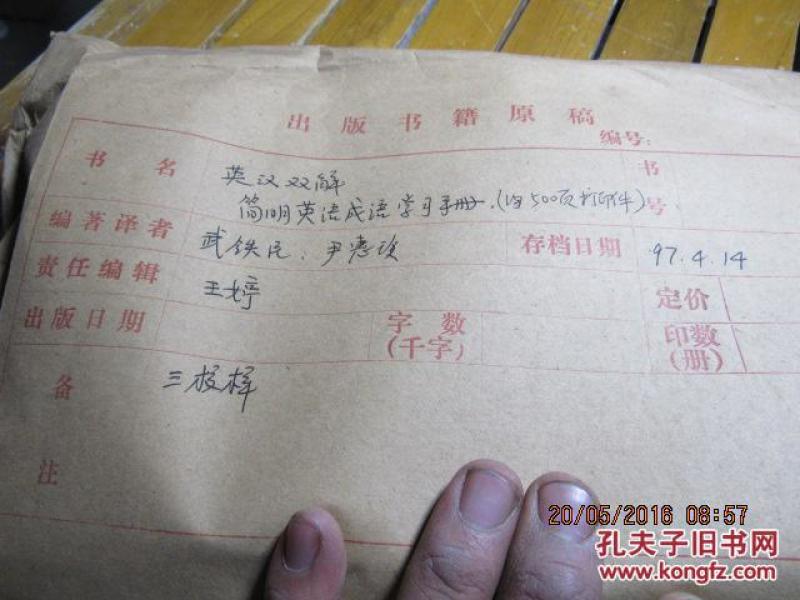 出版书籍原稿
编号:
书名 英汉双解 简明英语成语学习手册.(约500页打印件) 书号
编著译者 武铁民、尹惠 存档日期 97.4.14
责任编辑 王婷 定价
出版日期 字数(千字) 印数(册)
备注 三校样
20/05/2016 08:57
孔夫子旧书网
www.kongfz.com